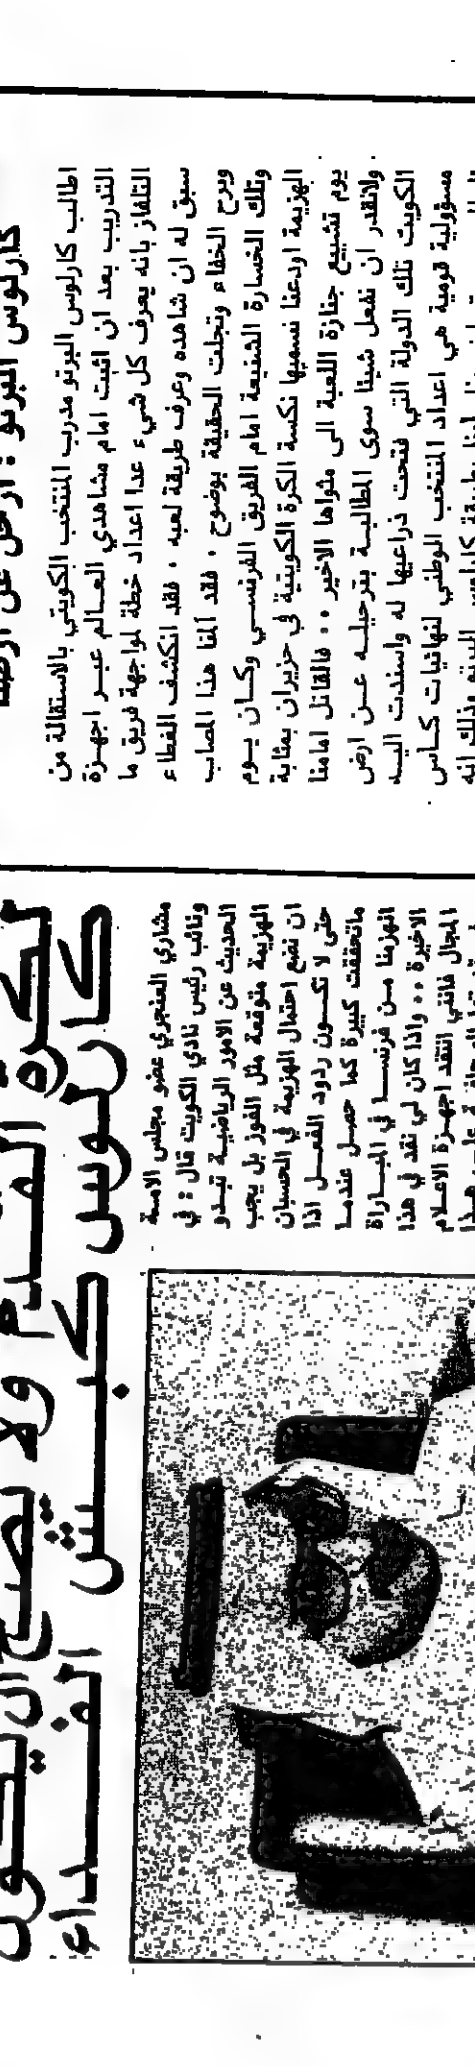 كارلوس البرتو : ارحل عن ارضنا
اطالب كارلوس البرتو مدرب المنتخب الكويتي بالاستقالة من
التدريب بعد ان اثبت امام مشاهدي العالم عبر اجهزة
التلفاز بانه يعرف كل شيء عدا اعداد خطة لمواجهة فريق ما
سبق له ان شاهده وعرف طريقة لعبه ، فقد انكشف الغطاء
وبرح الخفاء وتجلت الحقيقة بوضوح ، فقد آلمنا هذا المصاب
وتلك الخسارة الشنيعة امام الفريق الفرنسي وكان يوم
الهزيمة اودعنا نسميها نكسة الكرة الكويتية في حزيران بمثابة
يوم تشييع جنازة اللعبة الى مثواها الاخير ٠٠ فالقاتل امامنا
ولانقدر ان نفعل شيئا سوى المطالبة بترحيله عن ارض
الكويت تلك الدولة التي فتحت ذراعيها له واسندت اليه
مسؤولية قومية هي اعداد المنتخب الوطني لنهائيات كاس
لكرة القدم ولا يصح ان يكون
كارلوس كبش الفداء
مشاري العنجري عضو مجلس الامة
ونائب رئيس نادي الكويت قال : في
الحديث عن الامور الرياضية تبدو
الهزيمة متوقعة مثل الفوز بل يجب
ان نضع احتمال الهزيمة في الحسبان
حتى لا تكون ردود الفعل اذا
ماتحققت كبيرة كما حصل عندما
انهزمنا من فرنسا في المباراة
الاخيرة ٠٠ واذا كان لي نقد في هذا
المجال فانني انتقد اجهزة الاعلام